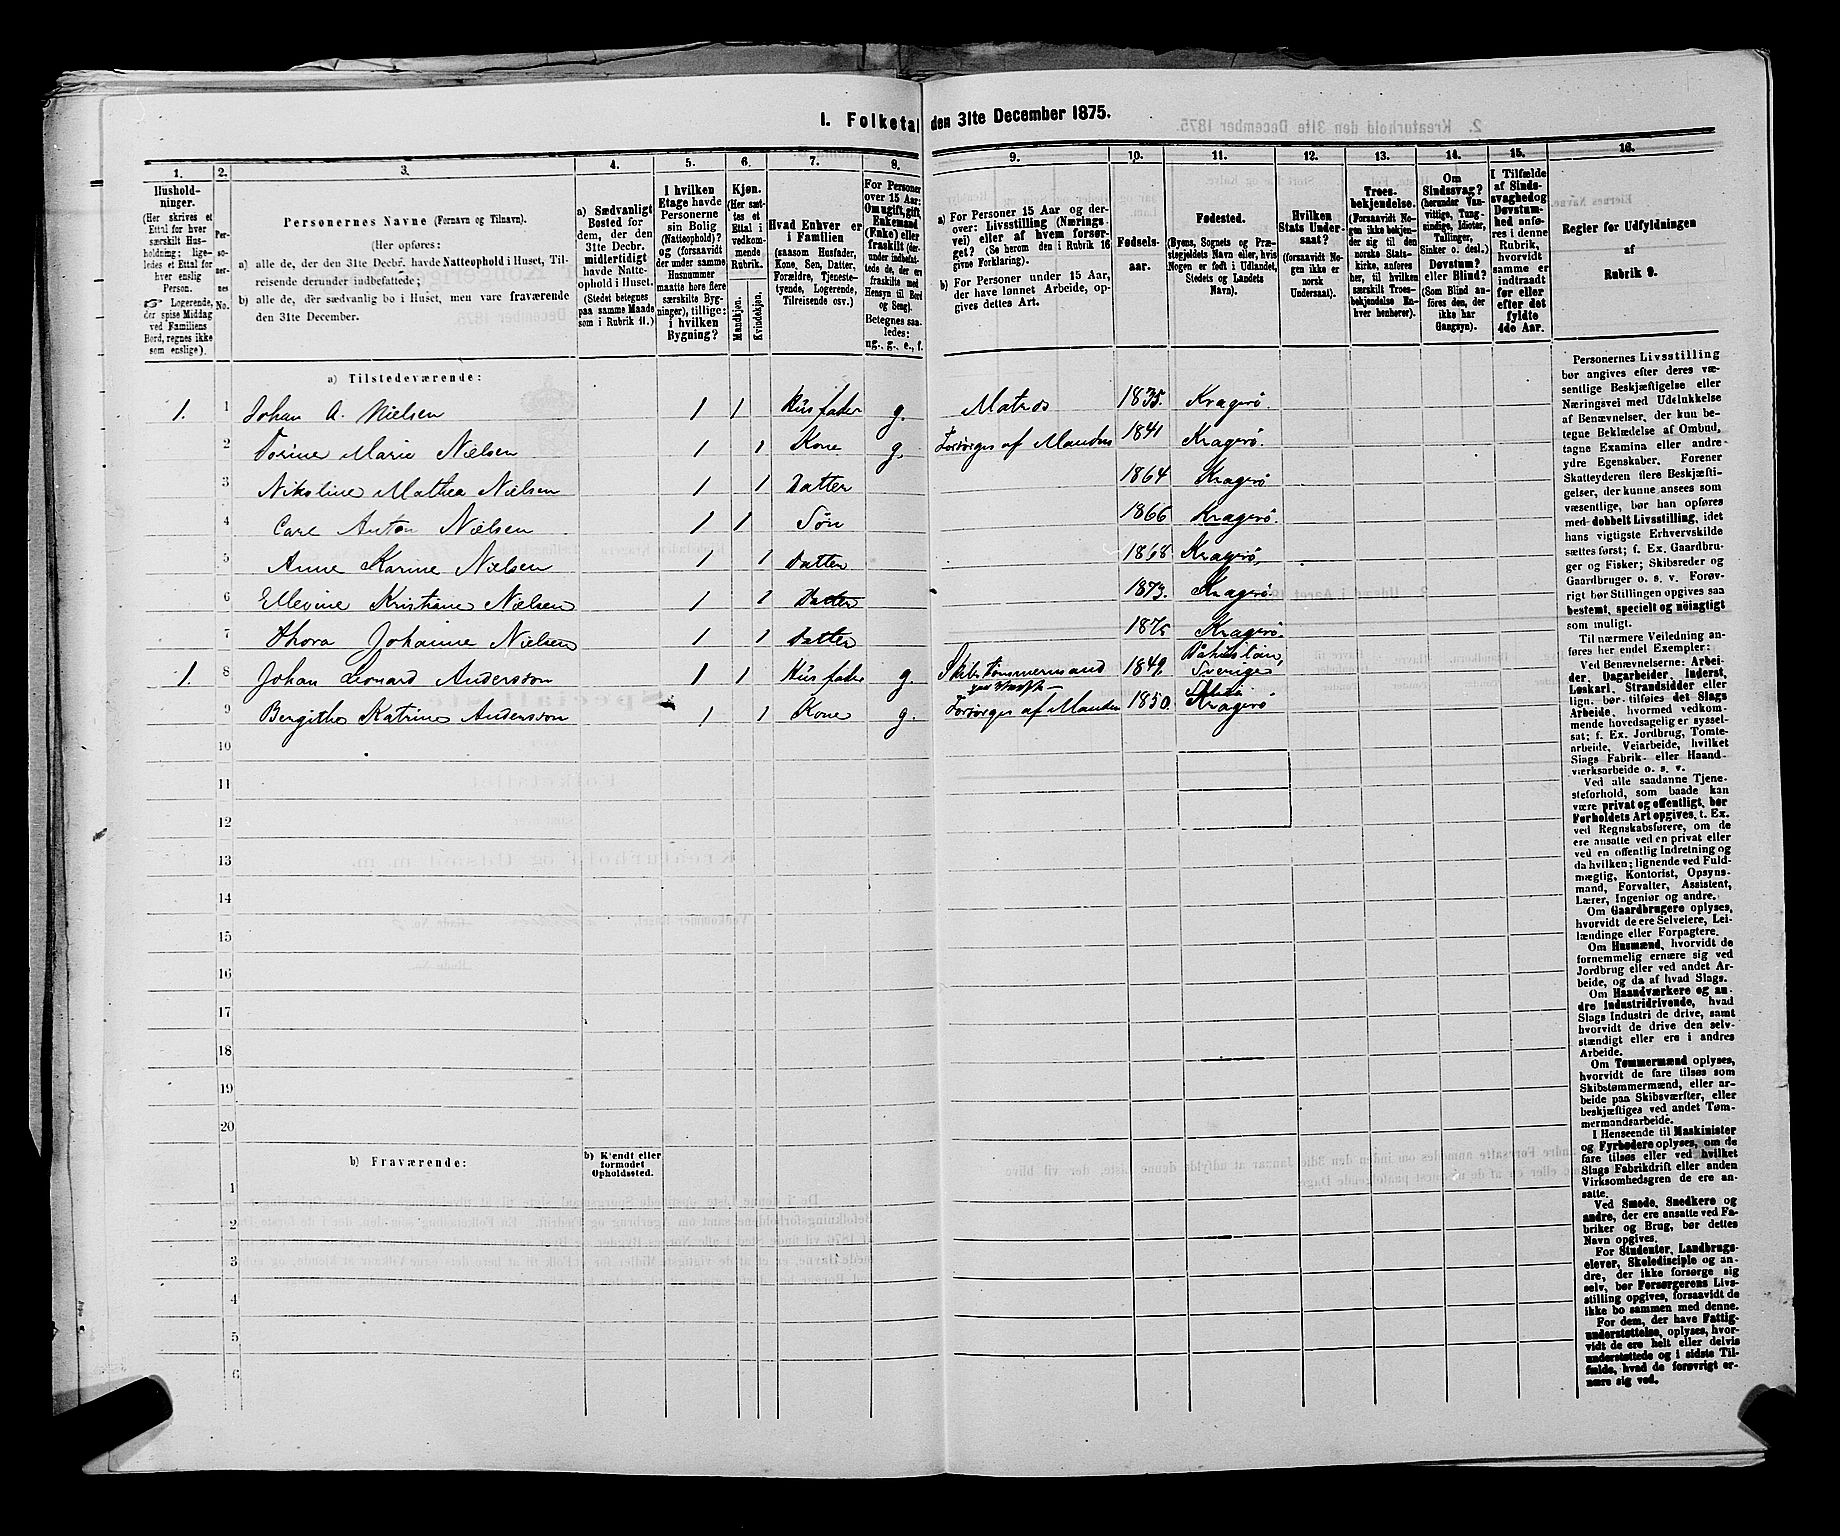 1. Folketal den 31te December 1875.
1.
Hushold-
ninger.
(Her skrives et
Ettal for hver
særskilt Hus-
holdning; lige-
ledes et Ettal for
hver enslig
Person.
☞ Logerende,
der spise Middag
ved Familiens
Bord, regnes ikke
som enslige).
2.
Per-
so-
ner-
nes
No.
3.
Personernes Navne (Fornavn og Tilnavn).
(Her opføres:
a) alle de, der den 31te Decbr. havde Natteophold i Huset, Til-
reisende derunder indbefattede;
b) alle de, der sædvanlig bo i Huset, men vare fraværende
den 31te December.
4.
a) Sædvanligt
Bosted for
dem, der den
31te Decbr.
midlertidigt
havde Natte-
ophold i Huset.
(Stedet betegnes
paa samme Maade
som i Rubrik 11.)
5.
I hvilken
Etage havde
Personerne
sin Bolig
(Natteophold)?
og (forsaavidt
der under samme
Husnummer
maatte høre flere
særskilte Byg-
ninger), tillige:
i hvilken
Bygning?
6.
Kjøn.
(Her sæt-
tes et
Ettal i
vedkom-
mende
Rubrik.
Mandkjøn.
Kvindekjøn.
7.
Hvad Enhver er
i Familien
(saasom Husfader,
Kone, Søn, Datter,
Forældre, Tjeneste-
tyende, Logerende,
Tilreisende osv.)
8.
For Personer
over 15 Aar:
Om ugift, gift,
Enkemand
(Enke) eller
fraskilt (der-
under indbefat-
tede de, der ere
fraskilte med
Hensyn til Bord
og Seng).
Betegnes saa-
ledes:
ug., g., e., f.
9.
a) For Personer 15 Aar og der-
over: Livsstilling (Nærings-
vei) eller af hvem forsør-
get? (Se herom den i Rubrik 16
givne Forklaring).
b) For Personer under 15 Aar,
der have lønnet Arbeide, op-
gives dettes Art.
10.
Fødsels-
aar.
11.
Fødested.
(Byens, Sognets og Præ-
stegjeldets Navn eller, hvis
Nogen er født i Udlandet,
Stedets og Landets
Navn).
12.
Hvilken
Stats Under-
saat?
(forsaavidt No-
gen ikke er
norsk
Undersaat).
13.
Troes-
bekjendelse.
(Forsaavidt No-
gen ikke bekjen-
der sig til den
norske Stats-
kirke, anføres
her, til hvilken
særskilt Troes-
bekjendelse En-
hver henhører).
14.
Om
Sindssvag?
(herunder Van-
vittige, Tung-
sindige, Idioter,
Tullinger,
Sinker o. desl.)
Døvstum?
eller Blind?
(Som Blind an-
føres den, der
ikke har
Gangsyn).
15.
I Tilfælde
af Sinds-
svaghed og
Døvstum-
hed anfø-
res i denne
Rubrik,
hvorvidt
samme er
indtraadt
før eller
efter det
fyldte
4de Aar.
16.
Regler for Udfyldningen
af
Rubrik 9.
a) Tilstedeværende:
1. 1 Johan A. Nielsen 1 1 Husfader g. Matros 1835. Kragerø.
2 Torine Marie Nielsen 1 1 Kone g. Forsørges af Manden 1841 Kragerø.
3 Nikoline Mathea Nielsen 1 1 Datter 1864 Kragerø
4 Carl Anton Nielsen 1 1 Søn 1866 Kragerø.
5 Anne Karine Nielsen 1 1 Datter 1868. Kragerø.
6 Ellevine Kristiane Nielsen 1 1 Datter 1873. Kragerø.
7 Thora Johanne Nielsen 1 1 Datter 1875 Kragerø.
1. 8 Johan Leonard Andersson 1 1 Husfader g. Skibstømmermand 1849 Sverige
9 Bergitha Katrine Andersson 1 1 Kone g. Forsørges af Manden 1850. Kragerø
10
11
12
13
14
15
16
17
18
19
20
b) Fraværende:
b) Kjendt eller
formodet
Opholdssted.
1
2
3
4
5
6
Personernes Livsstilling
bør angives efter deres væ-
sentlige Beskjæftigelse eller
Næringsvei med Udelukkelse
af Benævnelser, der kun be-
tegne Beklædelse af Ombud,
tagne Examina eller andre
ydre Egenskaber. Forener
Skatteyderen flere Beskjæfti-
gelser, der kunne ansees som
væsentlige, bør han opføres
med dobbelt Livsstilling, idet
hans vigtigste Erhvervskilde
sættes først; f. Ex. Gaardbru-
ger og Fisker; Skibsreder og
Gaardbruger o. s. v. Forøv-
rigt bør Stillingen opgives saa
bestemt, specielt og nöiagtigt
som muligt.
Til nærmere Veiledning an-
føres her endel Exempler:
Ved Benævnelserne: Arbei-
der, Dagarbeider, Inderst,
Løskarl, Strandsidder eller
lign. bør tilføies det Slags
Arbeide, hvormed vedkom-
mende hovedsagelig er syssel-
sat; f. Ex. Jordbrug, Tomte-
arbeide, Veiarbeide, hvilket
Slags Fabrik- eller Haand-
værksarbeide o. s. v.
Ved alle saadanne Tjene-
steforhold, som baade kan
være privat og offentligt, bør
Forholdets Art opgives, t. Ex.
ved Regnskabsførere, om de
ere ansatte ved en privat eller
ved en offentlig Indretning og
da hvilken; lignende ved Fuld-
mægtig, Kontorist, Opsyns-
mand, Forvalter, Assistent,
Lærer, Ingeniør og andre.
Om Gaardbrugere oplyses,
hvorvidt de ere Selveiere, Lei-
lændinge eller Forpagtere.
Om Husmænd, hvorvidt de
fornemmelig ernære sig ved
Jordbrug eller ved andet Ar-
beide, og da af hvad Slags.
Om Haandværkere og an-
dre Industridrivende, hvad
Slags Industri de drive, samt
hvorvidt de drive den selv-
stændigt eller ere i andres
Arbeide.
Om Tømmermænd oplyses,
hvorvidt de fare tilsøs som
Skibstømmermænd, eller ar-
beide paa Skibsværfter, eller
beskjæftiges ved andet Tøm-
mermandsarbeide.
I Henseende til Maskinister
og Fyrbødere oplyses, om de
fare tilsøs eller ved hvilket
Slags Fabrikdrift eller anden
Virksomhedsgren de ere an-
satte.
Ved Smede, Snedkere og
andre, der ere ansatte ved Fa-
briker og Brug, bør dettes
Navn opgives.
For Studenter, Landbrugs-
elever, Skoledisciple og an-
dre, der ikke forsørge sig
selv, bør Forsørgerens Livs-
stilling opgives, forsaavidt de
ikke bo sammen med denne.
For dem, der have Fattig-
understøttelse, oplyses, hvor-
vidt de ere helt eller delvis
understøttede og i sidste Til-
fælde, hvad de forøvrigt er-
nære sig ved.